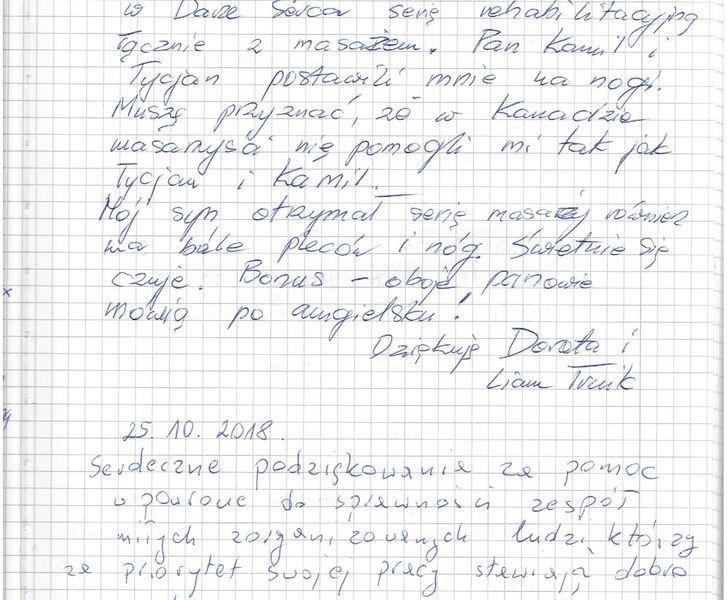 w Dare Sercor serię rehabilitacyjną
łącznie z masażem. Pan Kamil i
Tycjan postawili mnie na nogi.
Muszę przyznać, że w Kanadzie
masażyści nie pomogli mi tak jak
Tycjan i Kamil.
Mój syn otrzymał serię masaży również
na bóle pleców i nóg. Świetnie się
czuje. Bonus - oboje panowie
mówią po angielsku!
Dziękuję Dorota i
Liam
25.10.2018.
Serdeczne podziękowania za pomoc
w powrocie do sprawności zespół
miłych zorganizowanych ludzi którzy
za priorytet swojej pracy stawiają dobro